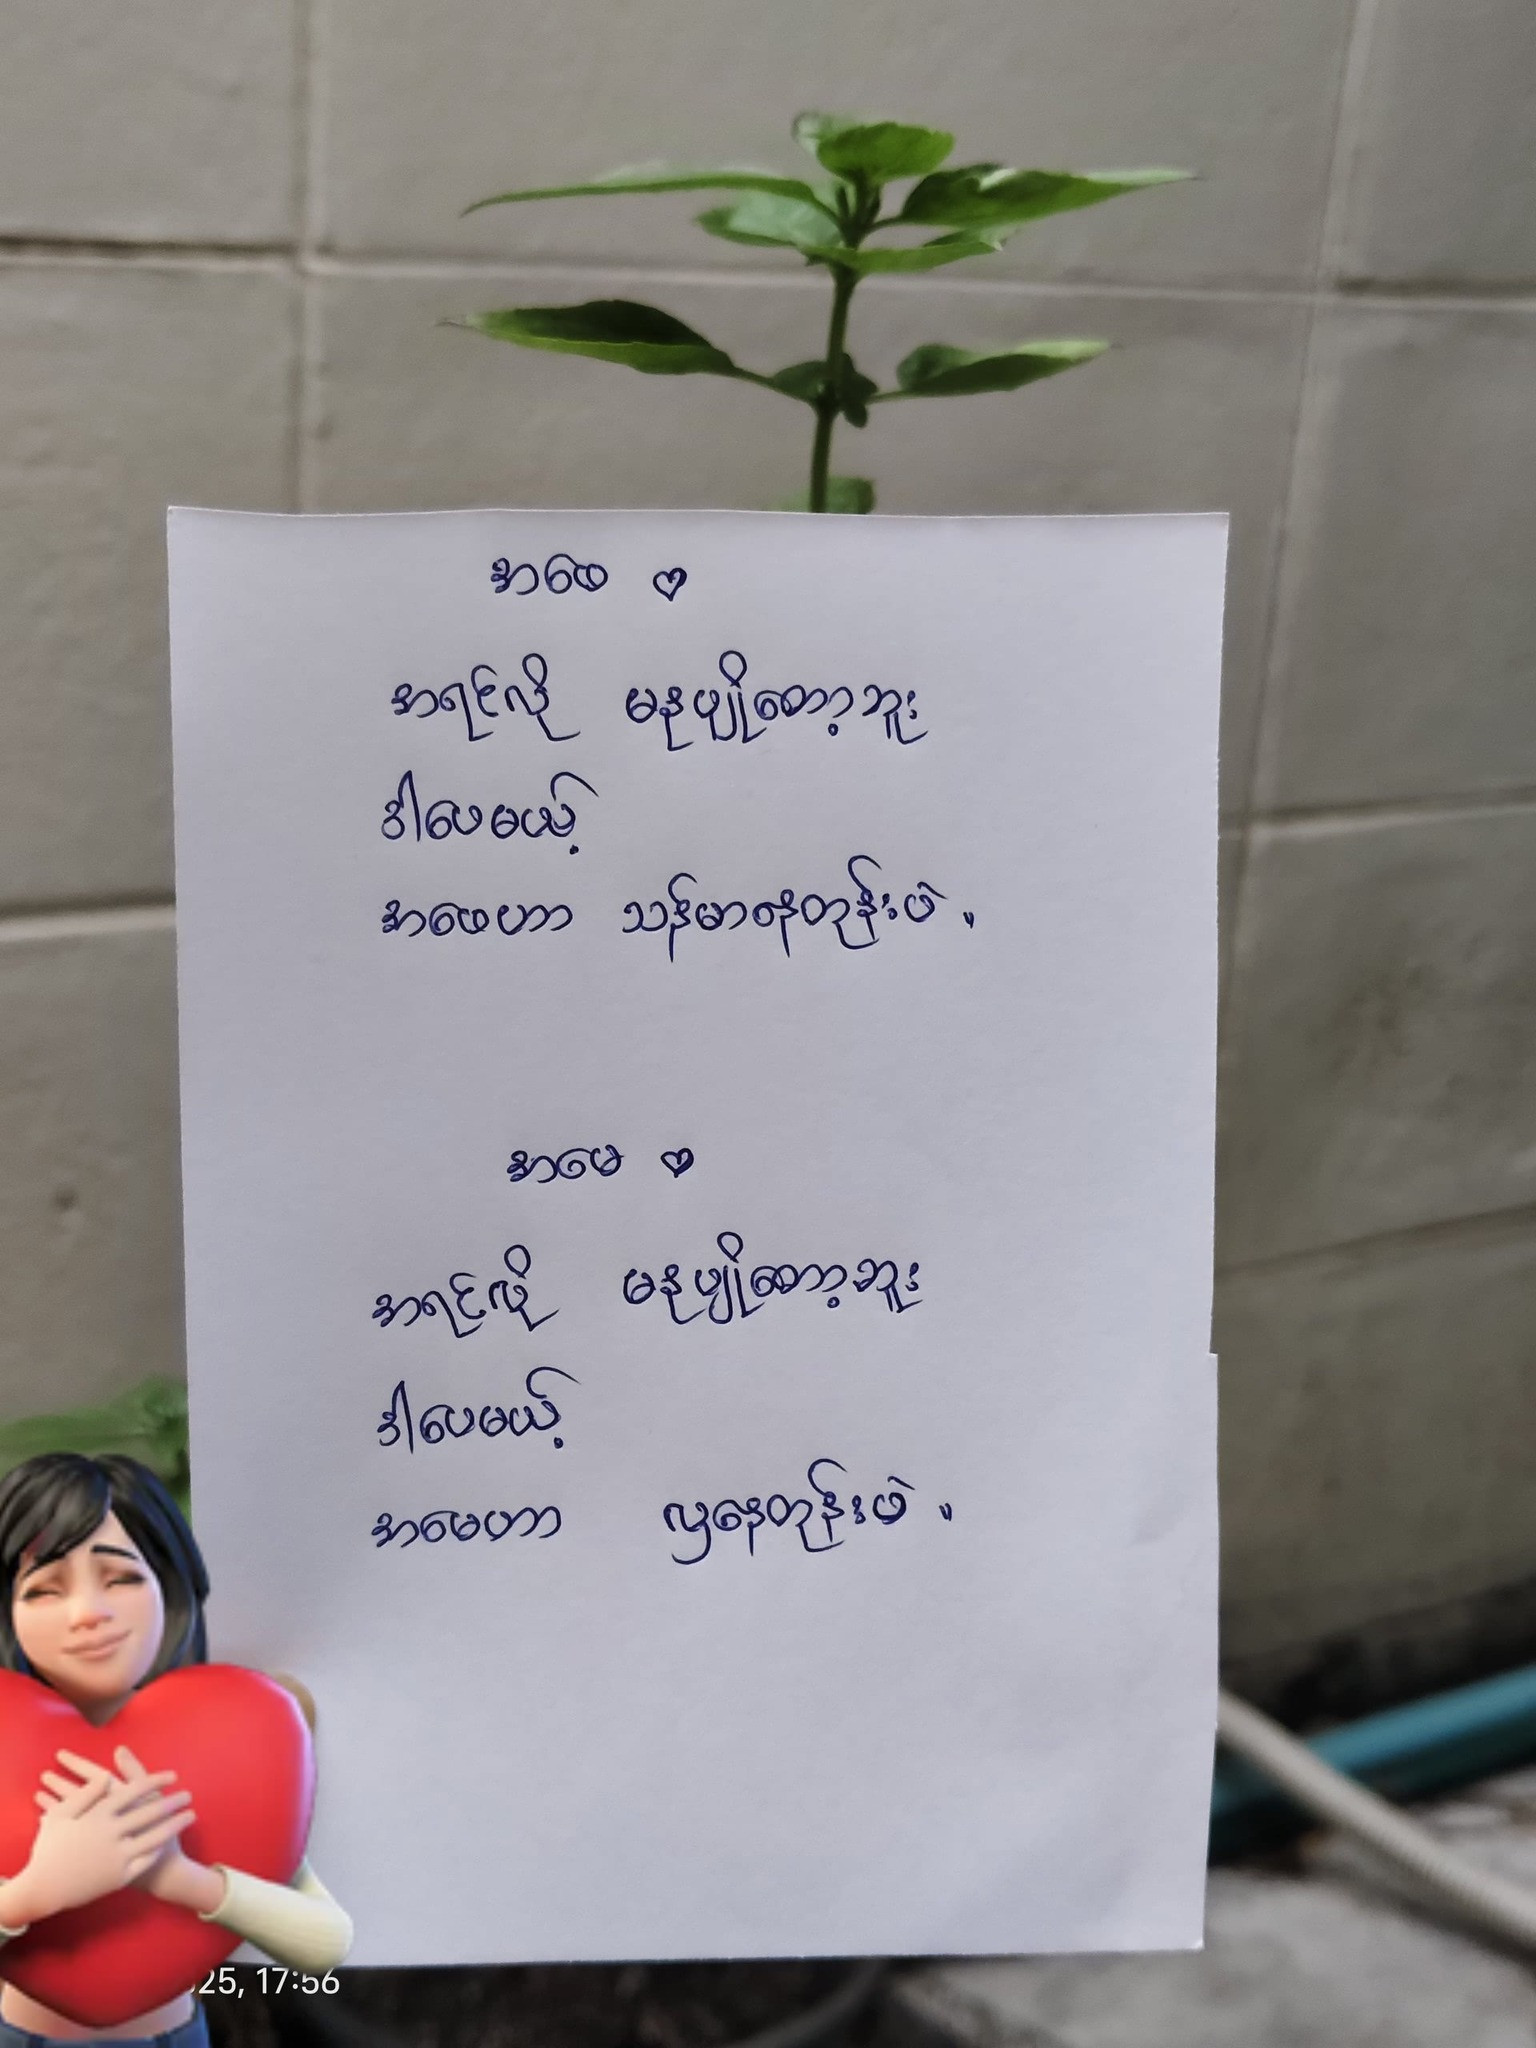 အဖေ ♡
အရင်လို မနုပျိုတော့ဘူး
ဒါပေမယ့်
အဖေဟာ သန်မာနေတုန်းပဲ ။
အမေ ♡
အရင်လို မနုပျိုတော့ဘူး
ဒါပေမယ့်
အမေဟာ လှနေတုန်းပဲ ။
25, 17:56